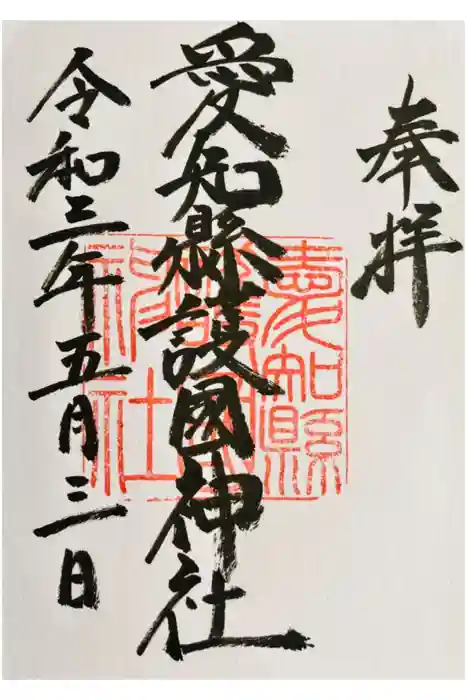 奉拝
愛知縣護國神社
愛知縣
護國
神社
令和三年五月三日